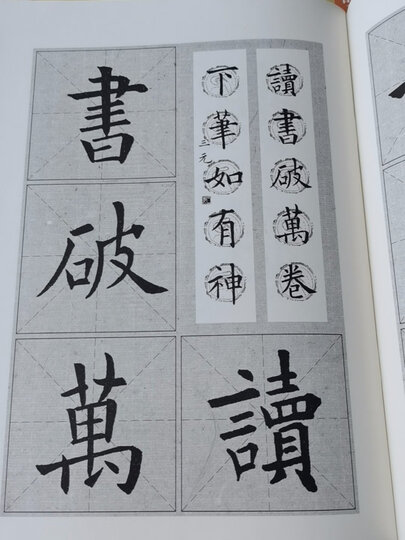 讀書破萬卷
下筆如有神
三元
讀
書
破
萬